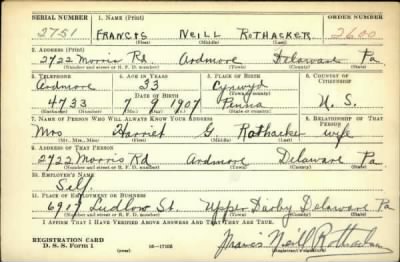 SERIAL NUMBER 1. NAME (Print) ORDER NUMBER
2751 FRANCIS NEILL ROTHACKER 2600
(First) (Middle) (Last)
2. ADDRESS (Print)
2722 Morris Rd Ardmore Delaware Pa
(Number and street or R. F. D. number) (Town) (County) (State)
3. TELEPHONE 4. AGE IN YEARS 5. PLACE OF BIRTH 6. COUNTRY OF CITIZENSHIP
Ardmore 33 Cynwyd
DATE OF BIRTH
4733 7 9 1907 Penna U. S.
(Exchange) (Number) (Mo.) (Day) (Yr.) (State or country)
7. NAME OF PERSON WHO WILL ALWAYS KNOW YOUR ADDRESS 8. RELATIONSHIP OF THAT PERSON
Mrs Harriet G. Rothacker wife
(Mr., Mrs., Miss) (First) (Middle) (Last)
9. ADDRESS OF THAT PERSON
2722 Morris Rd Ardmore Delaware Pa
(Number and street or R. F. D. number) (Town) (County) (State)
10. EMPLOYER'S NAME
Self.
11. PLACE OF EMPLOYMENT OR BUSINESS
6907 Ludlow St. Upper Darby Delaware Pa
(Number and street or R. F. D. number) (Town) (County) (State)
I AFFIRM THAT I HAVE VERIFIED ABOVE ANSWERS AND THAT THEY ARE TRUE.
REGISTRATION CARD
D. S. S. Form 1 (over) Francis Neill Rothacker